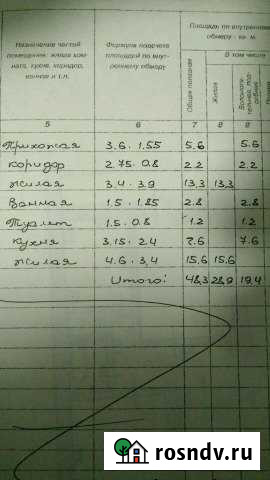 Назначение частей помещения: жилая комната, кухня, коридор, ванная и т.п.
Формула подсчета площадей по внутреннему обмеру
Площадь по внутреннему обмеру - кв. м.
Общая полезная
В том числе
Жилая
5 6 7 8 9
Прихожая 3.6 · 1.55 5.6 5.6
коридор 2.75 · 0.8 2.2 2.2
жилая 3.4 · 3.9 13,3 13,3
Ванная 1.5 · 1.85 2.8 2.8
Туалет 1.5 · 0.8 1.2 1.2
Кухня 3,15 · 2.4 7.6 7.6
жилая 4.6 · 3,4 15.6 15.6
Итого: 48,3 28,9 19,4
rosndv.ru